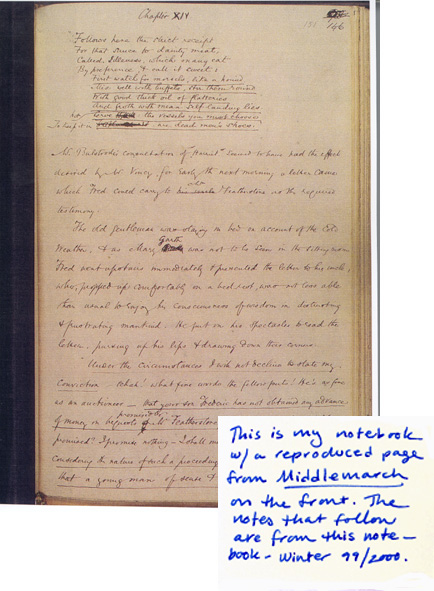 Chapter XIV
166
"Follows here the strict receipt
For that sauce to dainty meat,
Called Idleness, which many eat
By preference, & call it sweet:
First watch for morsels, like a hound
Mix well with buffets, stir them round
With good thick oil of flatteries
And froth with mean self-lauding lies
Serve warm: the vessels you must choose
To keep it in are dead men's shoes.
Mr. Bulstrode's consultation of Harriet seemed to have had the effect
desired by Mr. Vincy, for early the next morning a letter came
which Fred could carry to Mr. Featherstone as the required
testimony.
The old gentleman was staying in bed on account of the cold
weather, & as Mary Garth was not to be seen in the sitting room
Fred went upstairs immediately & presented the letter to his uncle,
who, propped up comfortably on a bed-rest, was not less able
than usual to enjoy his consciousness of wisdom in distrusting
& frustrating mankind. He put on his spectacles to read the
letter, pursing up his lips & drawing down their corners.
"Under the circumstances I will not decline to state my
conviction - tchah! what fine words the fellow puts! He's as fine
as an auctioneer - that your son Frederic has not obtained any advance
of money on bequests promised by Mr. Featherstone
promised? I promise nothing - I shall
Considering the nature of such a proceeding
that a young man of sense &
This is my notebook
w/ a reproduced page
from Middlemarch
on the front. The
notes that follow
are from this note-
book - Winter 99/2000.